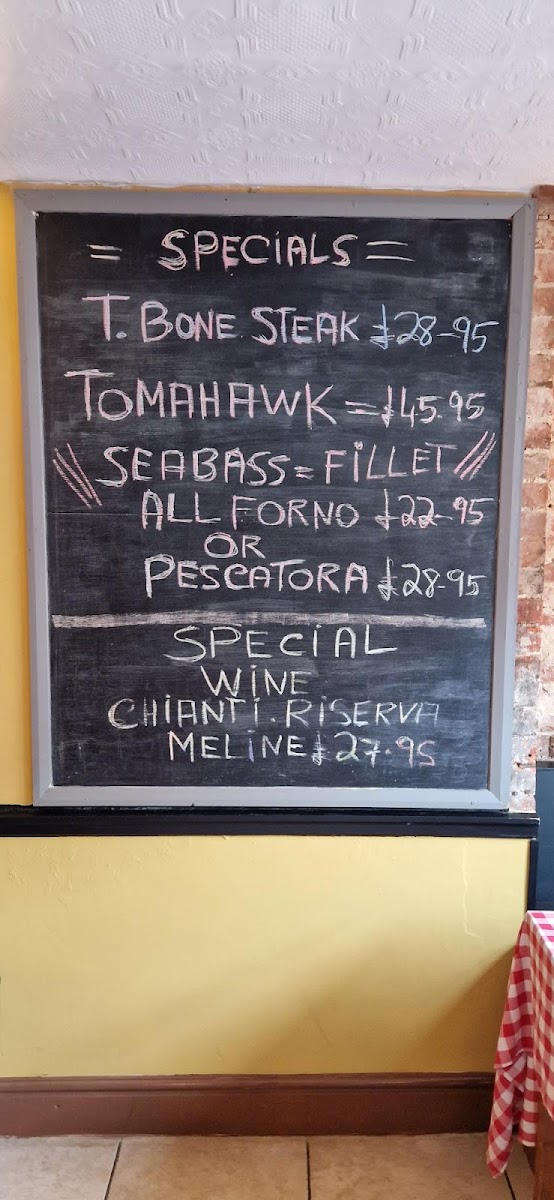 = SPECiALS =
T. BONE STEAK £28-95
TOMAHAWK = £45.95
\\\ SEABASS = FiLLET ///
ALL FORNO £22-95
OR
PESCATORA £28-95
SPECiAL
WiNE
CHiANTi. RiSERVA
MELiNE £27.95